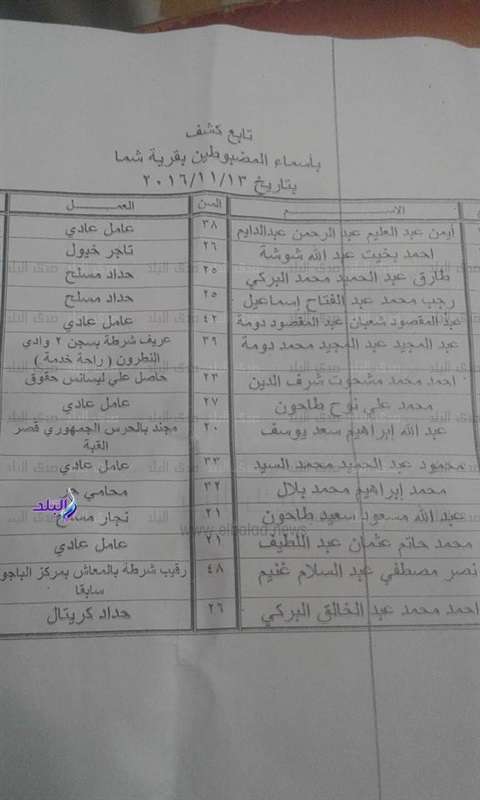 تابع كشف
بأسماء المضبوطين بقرية شما
بتاريخ ٢٠١٦/١١/١٣
الاســـم السن العمـــل
أيمن عبد العليم عبد الرحمن عبدالدايم ٣٨ عامل عادي
احمد بخيت عبد الله شوشة ٢٦ تاجر خيول
طارق عبد الحميد محمد البركي ٢٥ حداد مسلح
رجب محمد عبد الفتاح إسماعيل ٢٥ حداد مسلح
عبد المقصود شعبان عبد المقصود دومة ٤٢ عامل عادي
عبد المجيد عبد المجيد محمد دومة ٣٩ عريف شرطة بسجن ٢ وادي
النطرون ( راحة خدمة )
احمد محمد مشحوت شرف الدين ٢٣ حاصل علي ليسانس حقوق
محمد علي نوح طاحون ٢٧ عامل عادي
عبد الله إبراهيم سعد يوسف ٢٠ مجند بالحرس الجمهوري قصر
القبة
محمود عبد الحميد محمد السيد ٣٣ عامل عادي
محمد إبراهيم محمد بلال ٣٢ محامي
عبد الله مسعود سعيد طاحون ٢١ نجار مسلح
محمد حاتم عثمان عبد اللطيف ٢١ عامل عادي
نصر مصطفي عبد السلام غنيم ٤٨ رقيب شرطة بالمعاش بمركز الباجو
سابقا
احمد محمد عبد الخالق البركي ٢٦ حداد كريتال
صدى البلد
البلد
www.elbalad.news